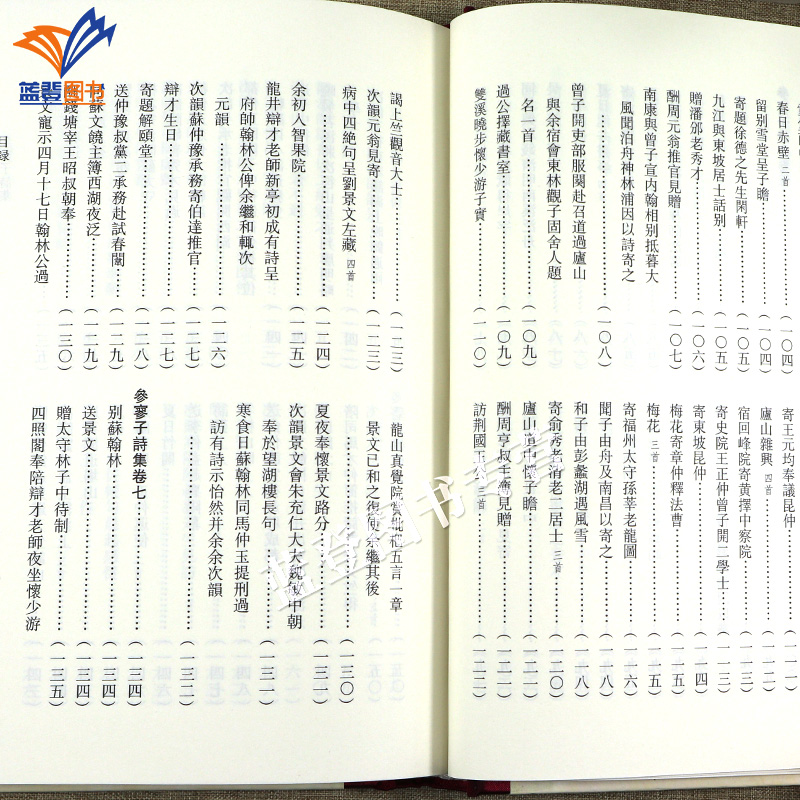 春日赤壁 二首……(一〇四)
留別雪堂呈子瞻……(一〇四)
寄題徐德之先生閑軒……(一〇五)
九江與東坡居士話別……(一〇五)
贈潘邠老秀才……(一〇六)
酬周元翁推官見贈……(一〇七)
南康與曾子宣内翰相別抵暮大
風聞泊舟神林浦因以詩寄之
……(一〇八)
曾子開吏部服闋赴召道過廬山
與余宿會東林觀子固舍人題
名一首……(一〇九)
過公擇藏書室……(一〇九)
雙溪曉步懷少游子實……(一一〇)
寄王元均奉議昆仲……(一一一)
廬山雜興 四首……(一一二)
宿回峰院寄黄擇中察院……(一一二)
寄史院王正仲曾子開二學士……(一一三)
寄東坡昆仲……(一一四)
梅花寄章仲釋法曹……(一一五)
梅花 三首……(一一五)
寄福州太守孫莘老龍圖……(一一六)
聞子由舟及南昌以寄之……(一一八)
和子由彭蠡湖遇風雪……(一一八)
寄俞秀老清老二居士 三首……(一二〇)
廬山道中懷子瞻……(一二一)
酬周亨叔主簿見贈……(一二一)
訪荆國王 二首……(一二二)
謁上竺觀音大士……(一二三)
次韻元翁見寄……(一二三)
病中四絶句呈劉景文左藏 四首
……(一二四)
余初入智果院……(一二五)
龍井辯才老師新亭初成有詩呈
府帥翰林公俾余繼和輒次
元韻……(一二六)
次韻蘇仲豫承務寄伯達推官……(一二七)
辯才生日……(一二七)
寄題解頤堂……(一二八)
送仲豫叔黨二承務赴試春闈……(一二九)
蘇文饒主簿西湖夜泛……(一二九)
錢塘宰王昭叔朝奉……(一三〇)
文寵示四月十七日翰林公過
龍山真覺院賞枇杷五言一章
景文已和之復使余繼其後
……(一三〇)
夏夜奉懷景文路分……(一三一)
次韻景文會朱充仁大夫魏敏中朝
奉於望湖樓長句……(一三一)
寒食日蘇翰林同馬仲玉提刑過
訪有詩示怡然并余余次韻
……(一三二)
參寥子詩集卷七……(一三四)
別蘇翰林……(一三四)
送景文……(一三四)
贈太守林子中待制……(一三五)
四照閣奉陪辯才老師夜坐懷少游
目録
藍登图书
蓝登图书专营